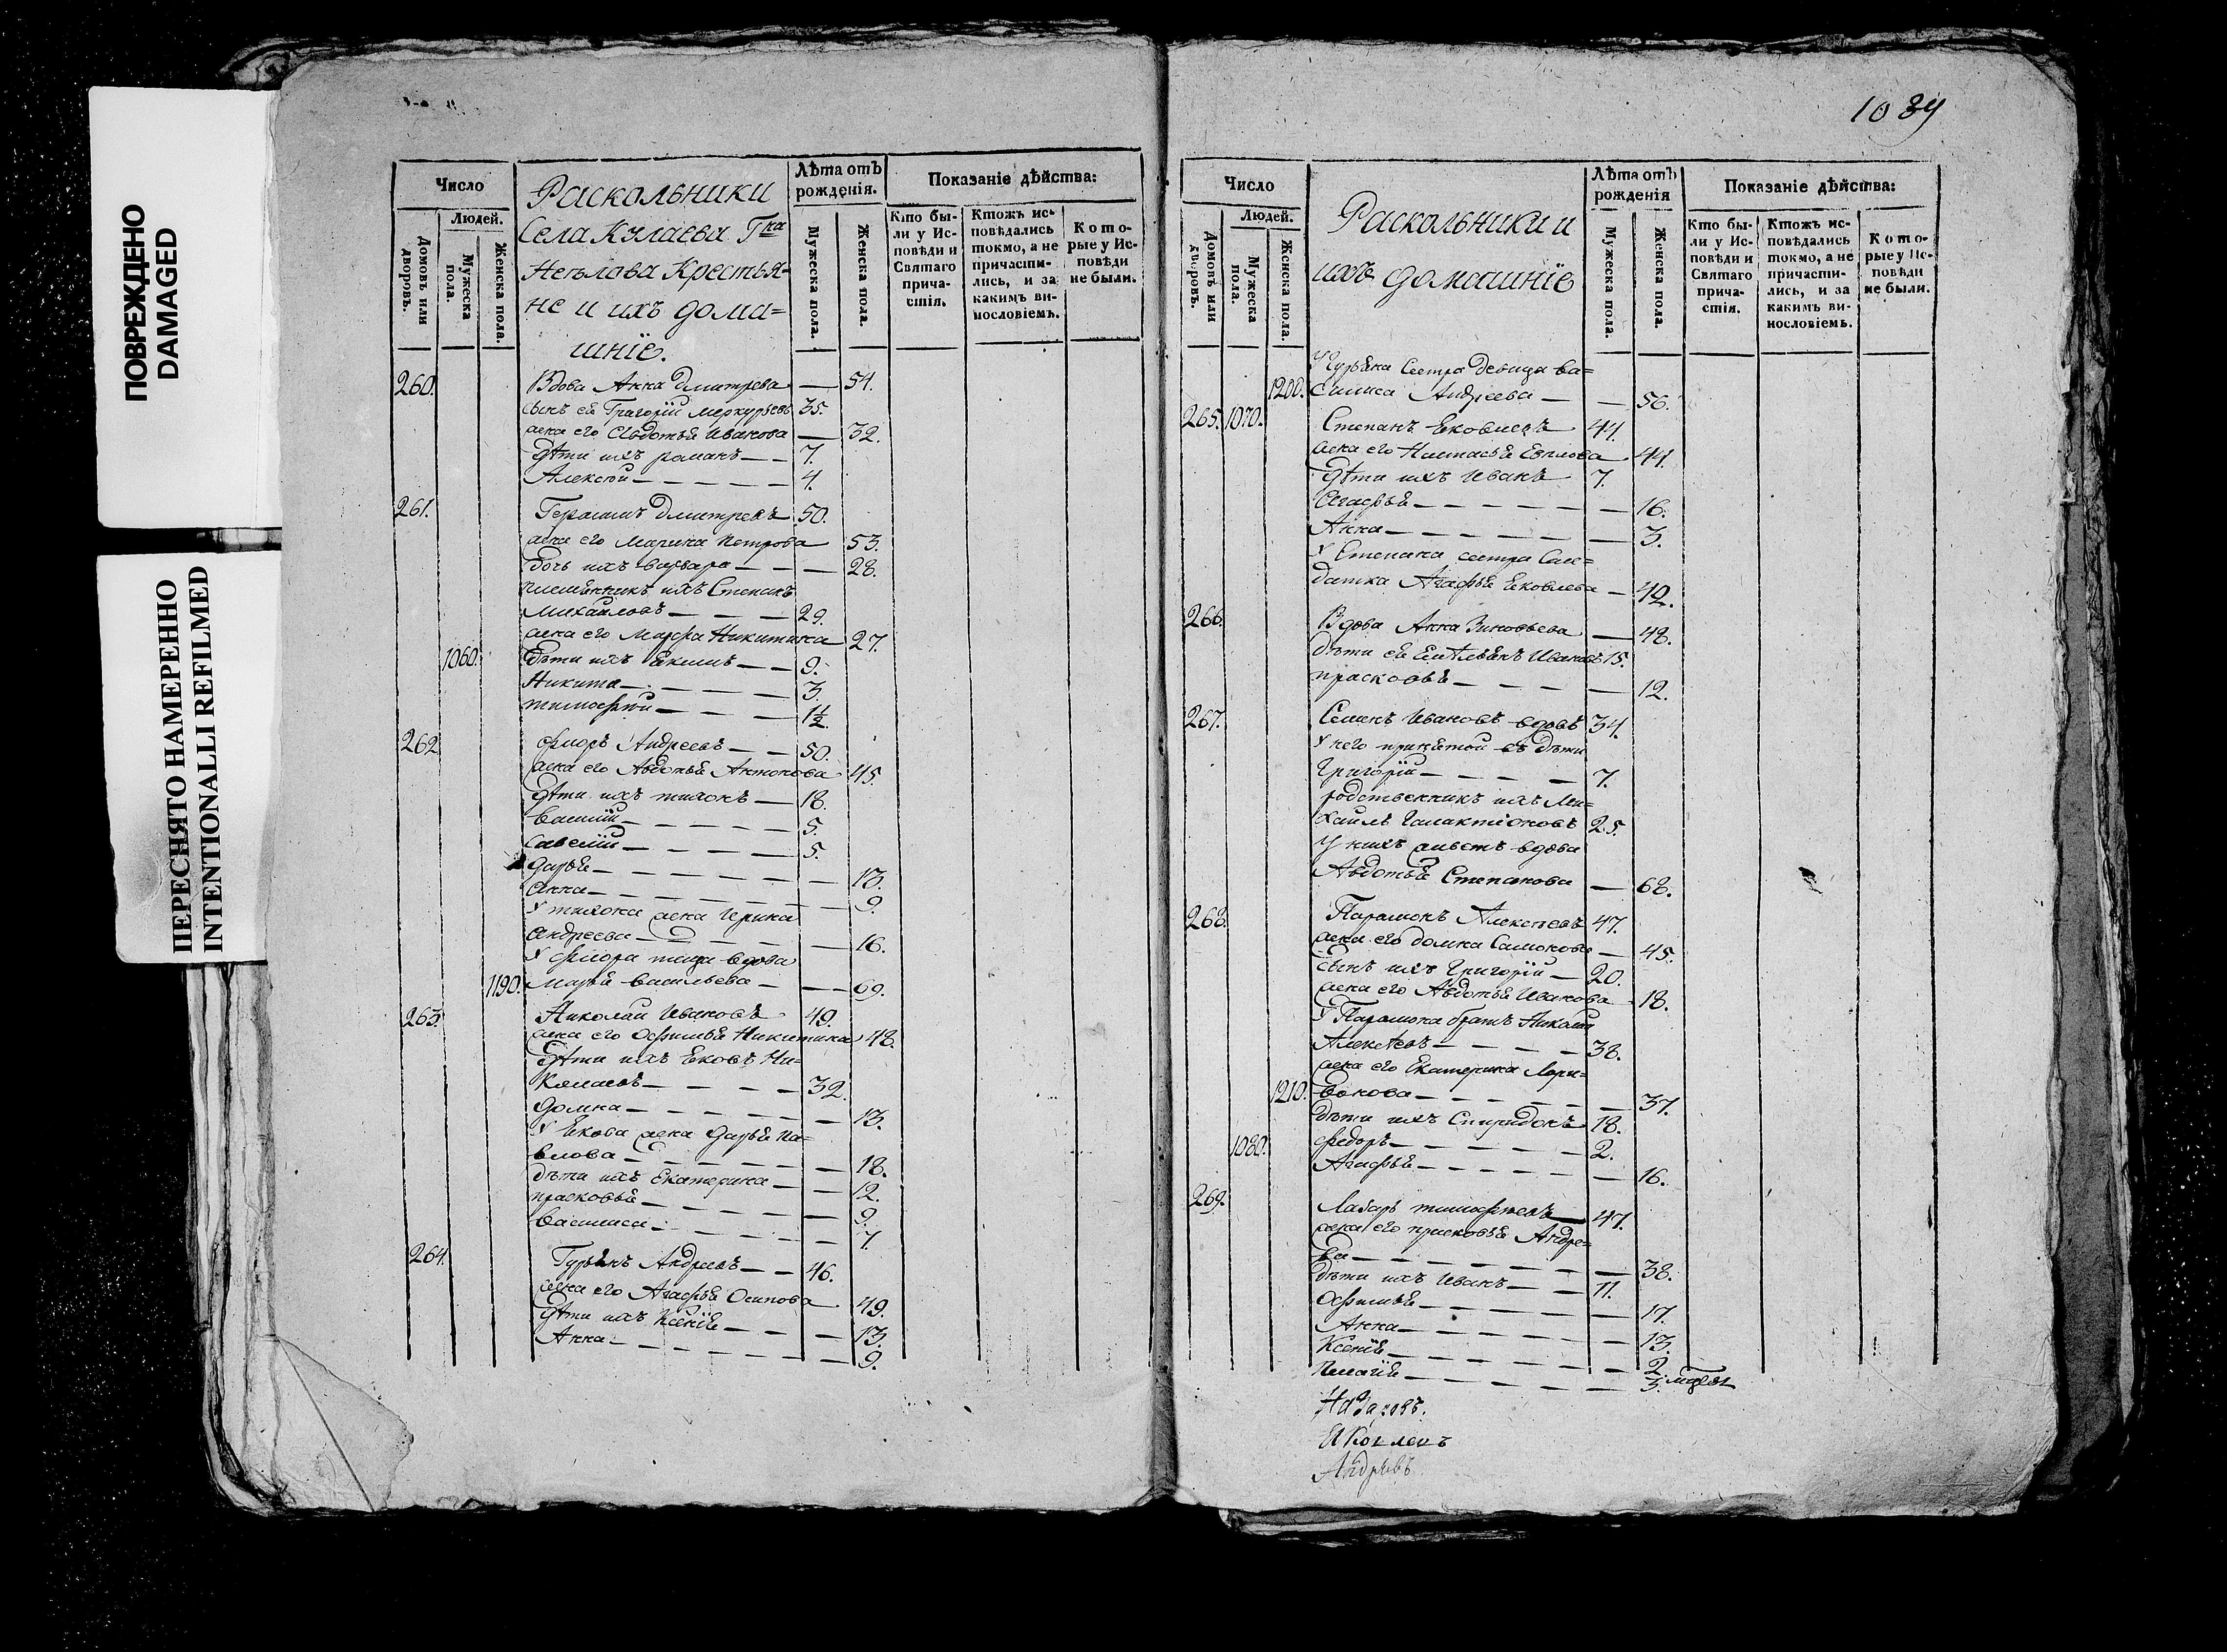 ПОВРЕЖДЕНО
DAMAGED
ПЕРЕСНЯТО НАМЕРЕННО
INTENTIONALLI REFILMED
Число
Людей.
Домовъ или дворовъ.
Мужеска пола.
Женска пола.
Раскольники
Села Кулаева Гна
Неѣлова Крестья=
не и ихъ дома=
шніе.
Лѣта отъ
рожденія.
Мужеска пола.
Женска пола.
Показаніе дѣйства:
Кто бы-
ли у Ис-
повѣди и
Святаго
прича-
стія.
Ктожъ ис-
повѣдались
токмо, а не
причасти-
лись, и за
какимъ ви-
нословіемъ.
Кото-
рые у Ис-
повѣди
не были.
260. Вдова Анна Дмитрева — 54.
сынъ ея Григорїй меркурьевъ 35.
жена его Авдотья Иванова — 32.
дѣти ихъ романъ — — 7.
Алексѣй — — — — — 4.
261. Герасимъ Дмитревъ 50.
жена его Марина Петрова 53.
дочь ихъ варвара — — — 28.
племянникъ ихъ Степанъ
Михайловъ — — — — 29.
жена его Марфа Никитина 27.
1060. дѣти ихъ Екимъ — — 9.
Никита — — — — 3.
тимофѣй — — — — 1½
262. флоръ Андреевъ — — 50.
жена его Авдотья Антонова 45.
дѣти ихъ тихонъ — 18.
василїй — — — — 5.
савелїй — — — — 5.
дарья — — — — — 13.
Анна — — — — — 9.
У тихона жена Ирина
андреева — — — — 16.
У флора теща вдова
1190. марья васильева — — — 69.
263. Николай Ивановъ 49.
жена его Офимья Никитина 48.
дѣти ихъ Яковъ Ни=
колаевъ — — — — 32.
домна — — — — — 13.
У Якова жена дарья па=
влова — — — — — 18.
дѣти ихъ Екатерина — — 12.
прасковья — — — — — 9.
василиса — — — — — 7.
264. Гурьянъ Андреевъ — — 46.
жена его Агафья Осипова 49.
дѣти ихъ Ксенїя — — — 13.
Анна — — — — — 9.
1089
Число
Людей.
Домовъ или дворовъ.
Мужеска пола.
Женска пола.
Раскольники и
ихъ домашніе
Лѣта отъ
рожденія
Мужеска пола.
Женска пола.
Показаніе дѣйства:
Кто бы-
ли у Ис-
повѣди и
Святаго
прича-
стія.
Ктожъ ис-
повѣдались
токмо, а не
причасти-
лись, и за
какимъ ви-
нословіемъ.
Кото-
рые у Ис-
повѣди
не были.
У Гурьяна Сестра девица ва=
1200. силиса Андреева — — 56.
265. 1070. Степанъ Яковлевъ 44.
жена его Настасья 44.
дѣти ихъ Иванъ 7.
Агафья — — — — — 16.
Анна — — — — — 3.
У Степана сестра Сал=
датка Агафья Яковлева — 42.
266. Вдова Анна Зиновьева — 48.
дѣти ея Емельянъ Ивановъ 15.
прасковья — — — — 12.
267. Семенъ Ивановъ вдовъ 34.
У него принятой въ дѣти
Григорїй — — — — 7.
родственникъ ихъ Ми=
хаилъ Галактїоновъ 25.
У нихъ живетъ вдова
Авдотья Степанова — 68.
268. Парамонъ Алексѣевъ 47.
жена его домна — 45.
сынъ ихъ Григорїй — 20.
жена его Авдотья Иванова 18.
У Парамона братъ Николай
Алексѣевъ — — — — 38.
жена его Екатерина Лари=
1210. вонова — — — — — 37.
дѣти ихъ Спиридонъ 18.
1080. федоръ — — — — — 2.
Агафья — — — — — 16.
269. Лазарь тимофѣевъ 47.
жена его прасковья Андре=
ва — — — — — 38.
дѣти ихъ Иванъ — — 11.
Офимья — — — — — 17.
Анна — — — — — 13.
Ксенїя — — — — — 2.
Пелагїя — — — — — 3.
Назаровъ.
Яковлевъ
Андреевъ